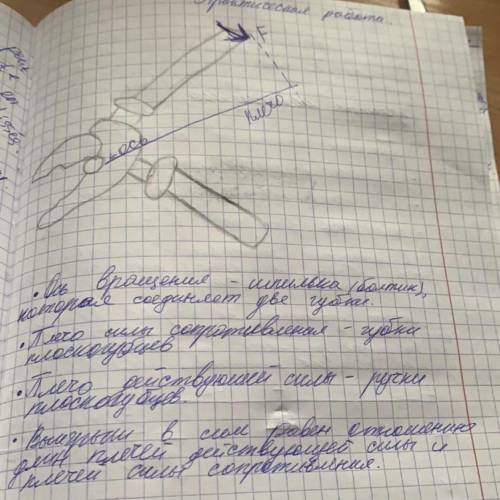 Практическая работа
F
плечо
ось
• Ось вращения - шпилька (болтик),
которая соединяет две губки.
• Плечо силы сопротивления - губки
плоскогубцев
• Плечо действующей силы - ручки
плоскогубцев.
• Выигрыш в силе равен отношению
длин плечей действующей силы и
плечей силы сопротивления.